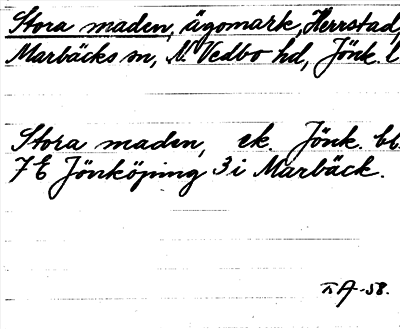 Stora maden, ägomark, Herrstad,
Marbäcks sn, N. Vedbo hd, Jönk. l
Stora maden, ek. Jönk. bl.
7 E Jönköping 3 i Marbäck.
A -58.